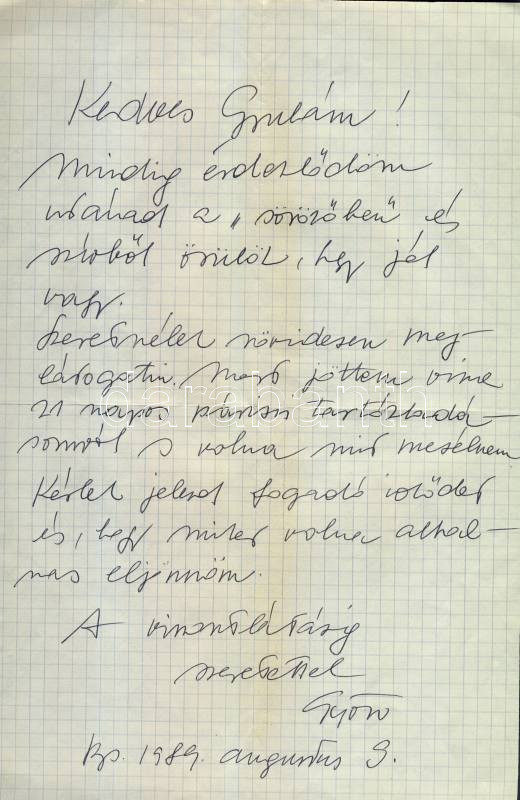 Kedves Gyulám!
Mindig érdeklődöm
utánad a „sörözőben" és
szívből örülök, hogy jól
vagy.
Szeretnélek rövidesen meg-
látogatni. Most jöttem vissza
21 napos párisi tartózkodá-
somról s volna mit mesélnem
Kérlek jelezd fogadó idődet
és, hogy mikor volna alkal-
mas eljönnöm.
A viszontlátásig
szeretettel
Bp. 1989. augusztus 9.
darabanth